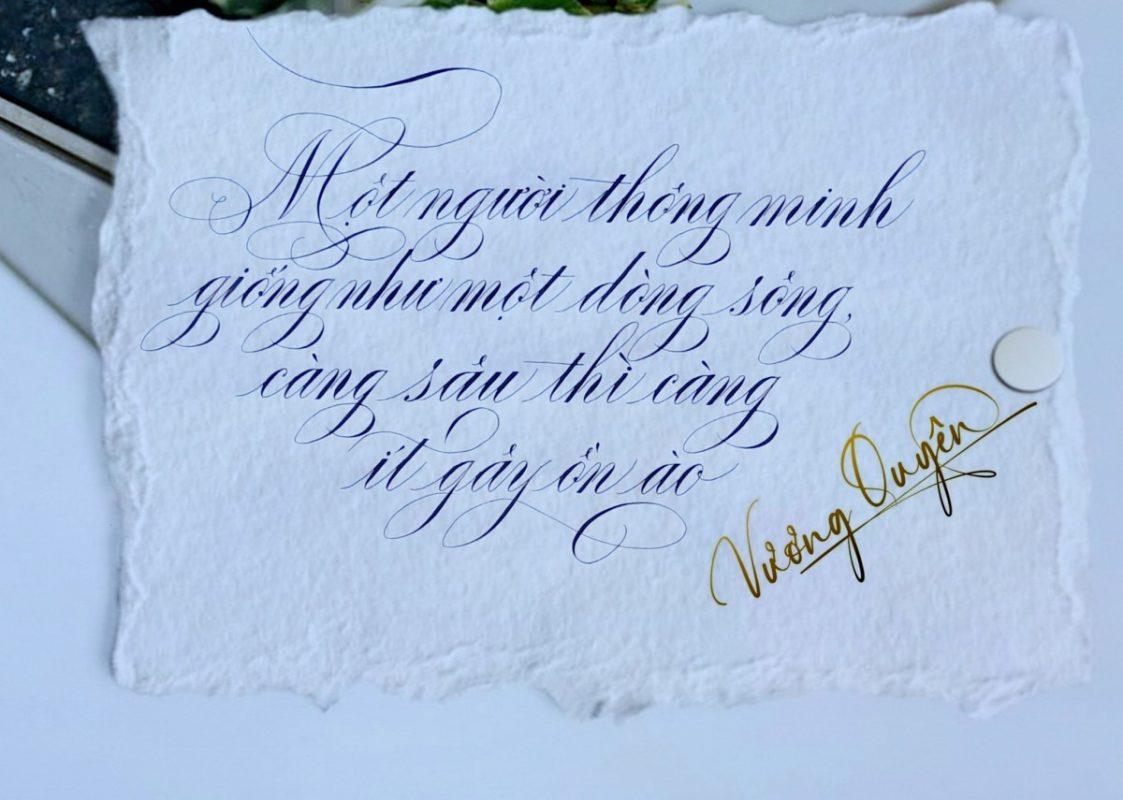 Một người thông minh
giống như một dòng sông,
càng sâu thì càng
ít gây ồn ào
Vương Quyên